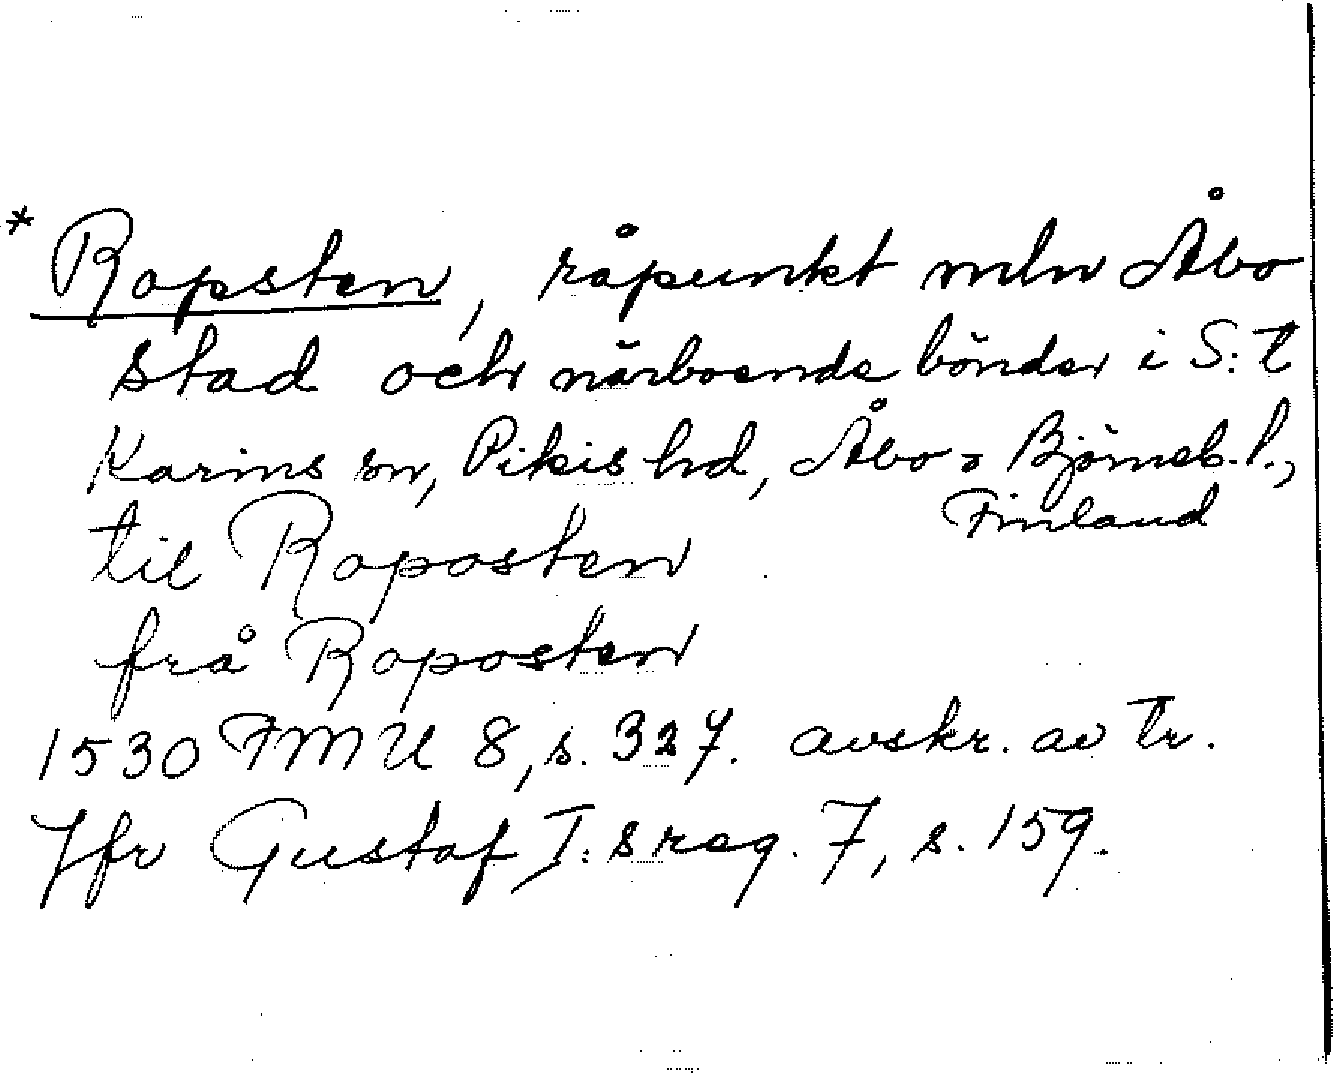 * Ropsten, råpunkt mln Åbo
stad och närboende bönder i S:t
Karins sn, Pikis hd, Åbo o Björneb. l.,
Finland
til Roposten
frå Roposten
1530 FMU 8, s. 327. avskr. av tr.
Jfr Gustaf I:s reg. 7, s. 159.